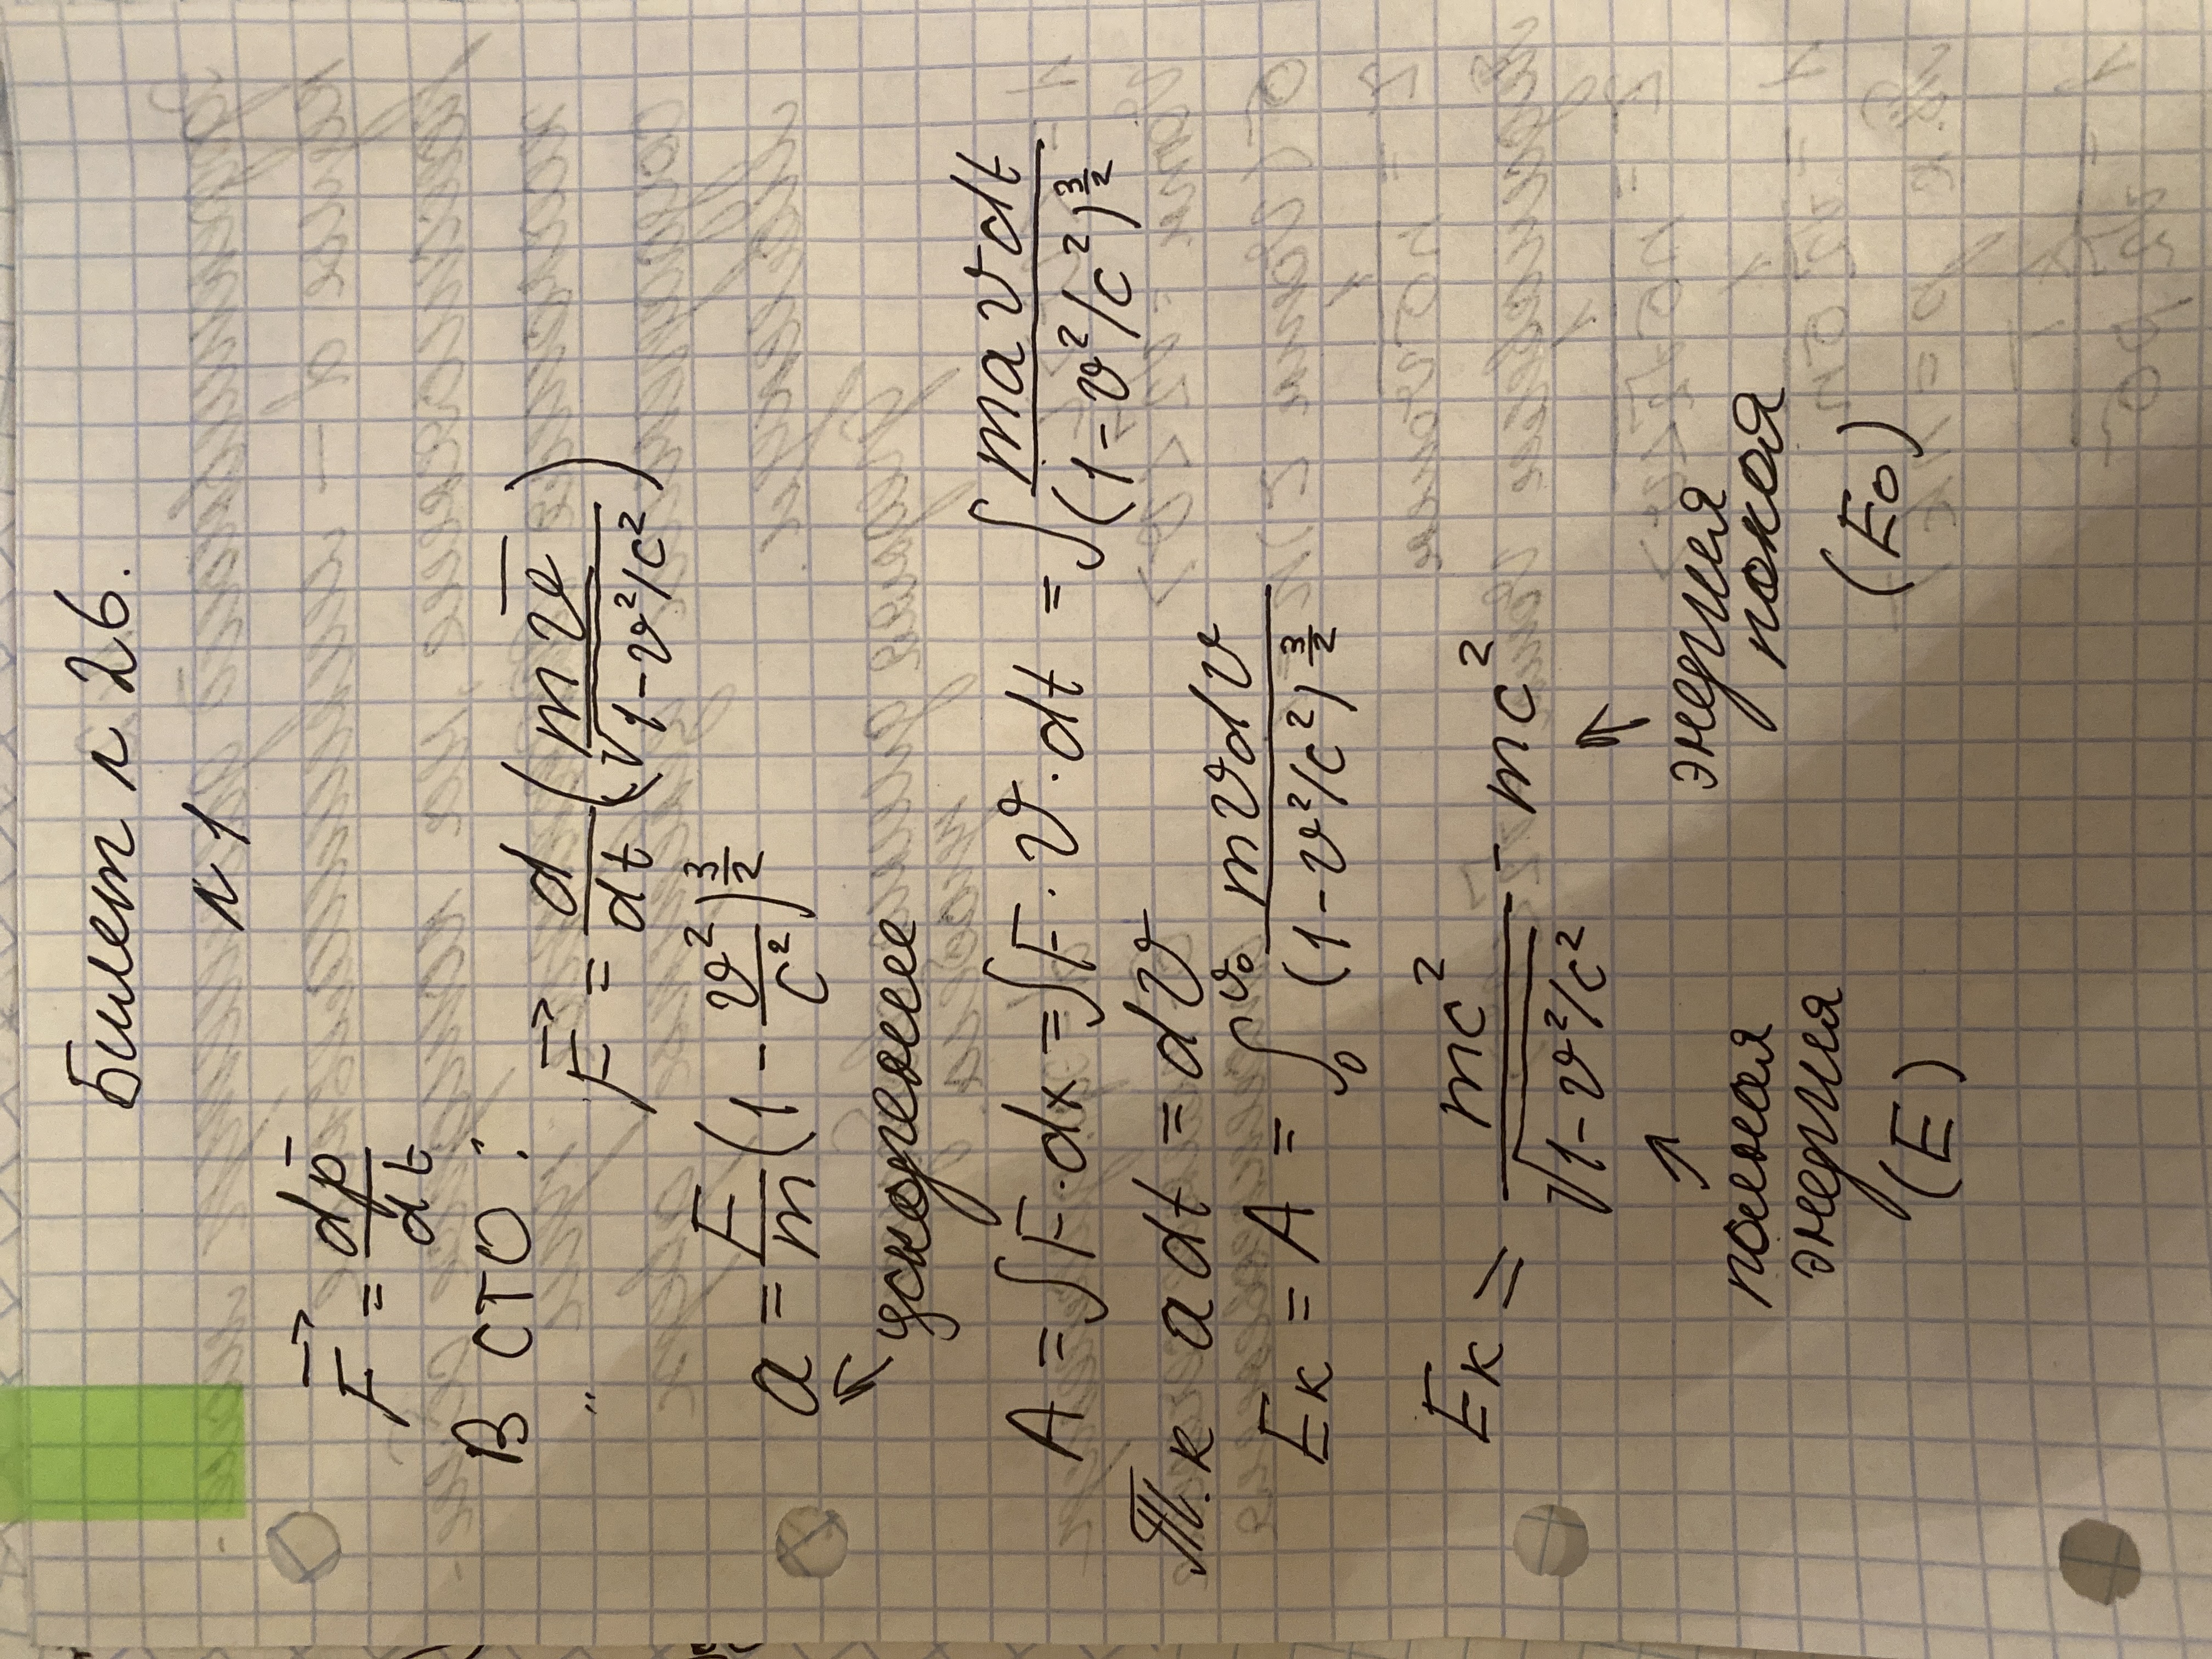 Билет №26.
№1
F⃗ = dp̄/dt
В СТО:
F⃗ = d/dt (mv̄/√(1-v²/c²))
a = F/m (1 - v²/c²)^(3/2)
ускорение
A = ∫F·dx = ∫F·v·dt = ∫ mavdt/(1-v²/c²)^(3/2)
Т.к adt = dv
Eк = A = ∫₀^v₀ mvdv/(1-v²/c²)^(3/2)
Eк = mc²/√(1-v²/c²) - mc²
полная энергия (E)
энергия покоя (E₀)